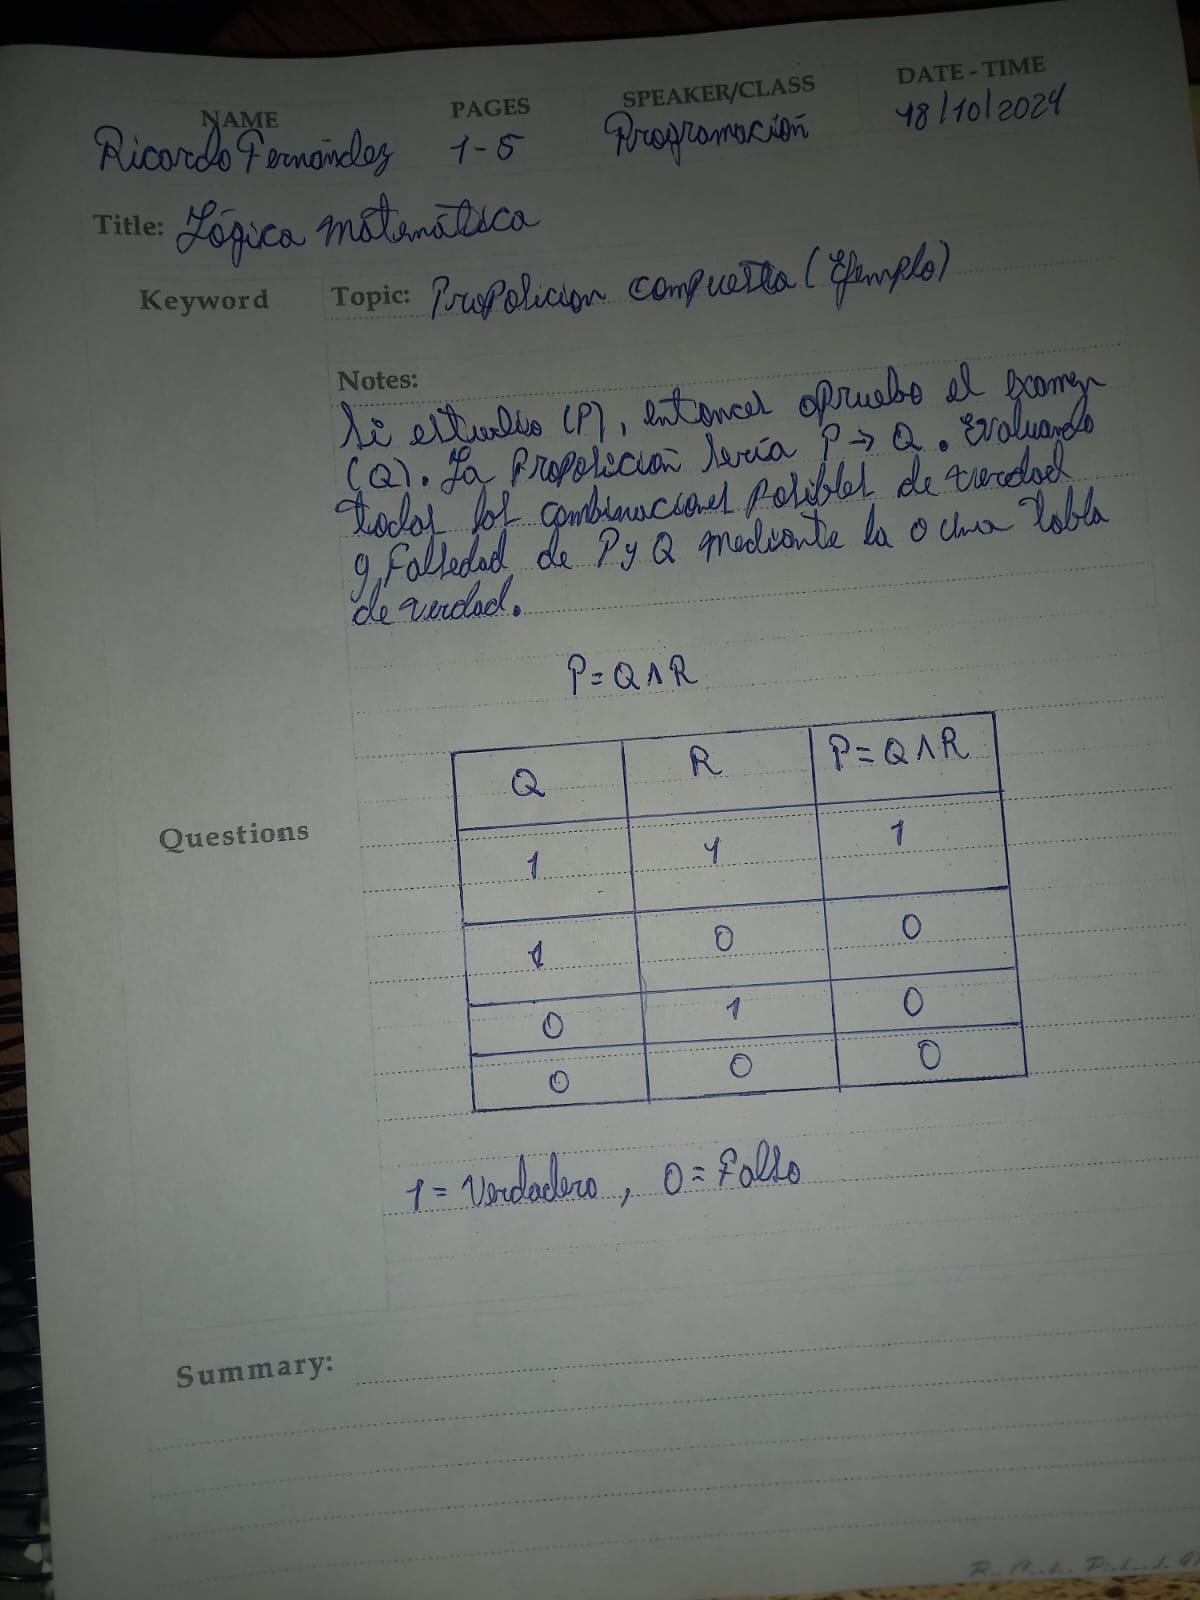 NAME PAGES SPEAKER/CLASS DATE - TIME
Ricardo Fernández 1-5 Programación 18/10/2024
Title: Lógica matemática
Keyword Topic: Proposicion compuesta (Ejemplo)
Notes:
Si estudio (P), entonces apruebo el examen
(Q). La Proposición sería P → Q. Evaluando
todas las combinaciones posibles de verdad
y Falsedad de P y Q mediante la o una tabla
de verdad.
P = Q ∧ R
Q R P = Q ∧ R
Questions
1 1 1
1 0 0
0 1 0
0 0 0
1 = Verdadero, 0 = Falso
Summary: